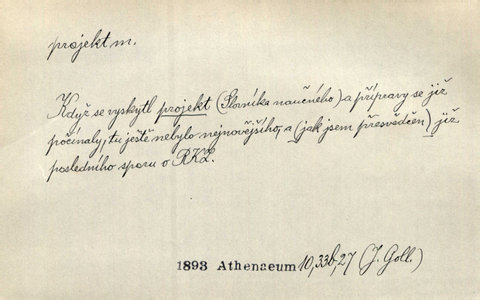 projekt m.
Když se vyskytl projekt (Slovníka naučného) a přípravy se již
počínaly, tu ještě nebylo nejnovějšího, a (jak jsem přesvědčen) již
posledního sporu o RKZ.
1893 Athenaeum 10, 33b, 27 (J. Goll.)